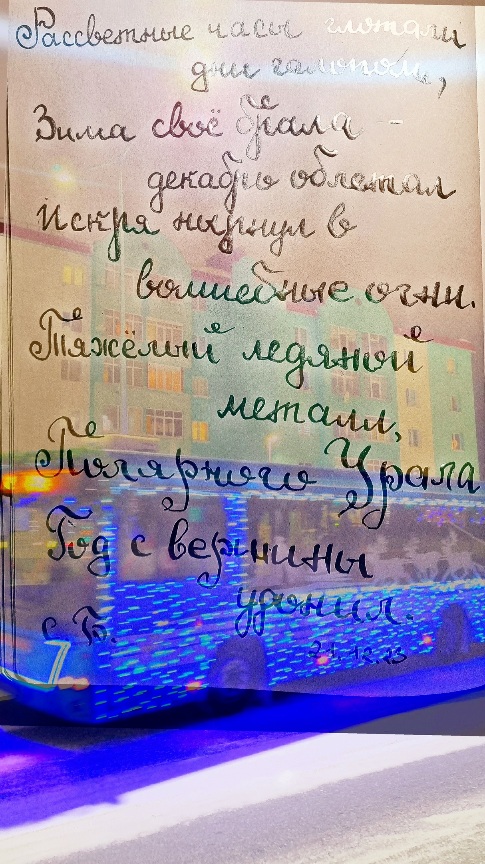 Рассветные часы глотали
дни галопом,
Зима своё брала -
декабрь облетал
Искря нырнул в
волшебные огни.
Тяжёлый ледяной
металл,
Полярного Урала
Год с вершины
уронил.
с. Б.
21.12.23
7